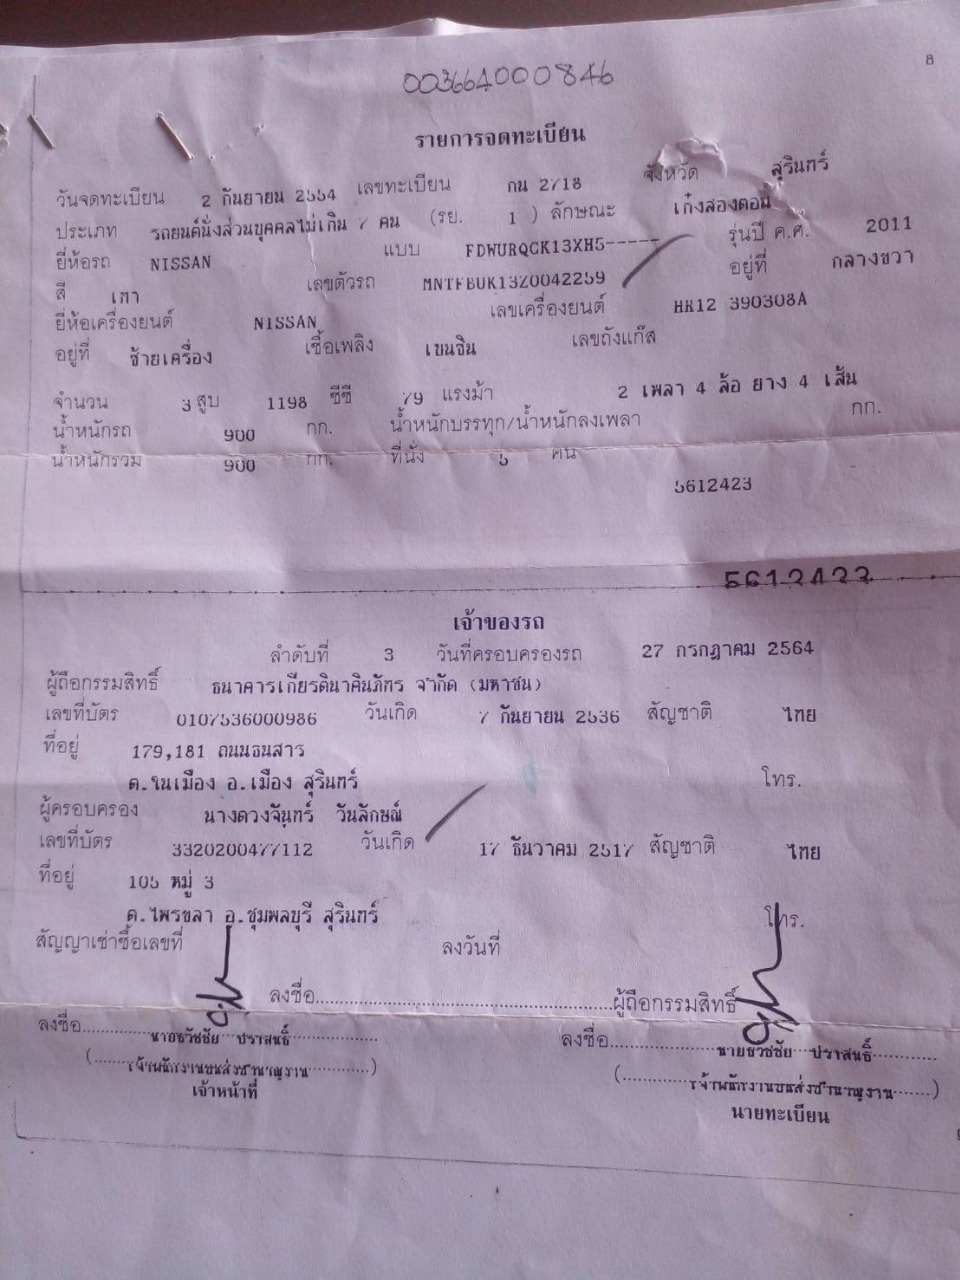 8
003664000846
รายการจดทะเบียน
วันจดทะเบียน 2 กันยายน 2554 เลขทะเบียน กน 2718 จังหวัด สุรินทร์
ประเภท รถยนต์นั่งส่วนบุคคลไม่เกิน 7 คน (รย. 1 ) ลักษณะ เก๋งสองตอน
ยี่ห้อรถ NISSAN แบบ FDWURQCK13XH5----- รุ่นปี ค.ศ. 2011
สี เทา เลขตัวรถ MNTFBUK13Z0042259 อยู่ที่ กลางขวา
ยี่ห้อเครื่องยนต์ NISSAN เลขเครื่องยนต์ HR12 390308A
อยู่ที่ ซ้ายเครื่อง เชื้อเพลิง เบนซิน เลขถังแก๊ส
จำนวน 3 สูบ 1198 ซีซี 79 แรงม้า 2 เพลา 4 ล้อ ยาง 4 เส้น
น้ำหนักรถ 900 กก. น้ำหนักบรรทุก/น้ำหนักลงเพลา กก.
น้ำหนักรวม 900 กก. ที่นั่ง 5 คน
5612423
5612423
เจ้าของรถ
ลำดับที่ 3 วันที่ครอบครองรถ 27 กรกฎาคม 2564
ผู้ถือกรรมสิทธิ์ ธนาคารเกียรตินาคินภัทร จำกัด (มหาชน)
เลขที่บัตร 0107536000986 วันเกิด 7 กันยายน 2536 สัญชาติ ไทย
ที่อยู่ 179,181 ถนนธนสาร
ต.ในเมือง อ.เมือง สุรินทร์ โทร.
ผู้ครอบครอง นางดวงจันทร์ วันลักษณ์
เลขที่บัตร 3320200477112 วันเกิด 17 ธันวาคม 2517 สัญชาติ ไทย
ที่อยู่ 105 หมู่ 3
ต.ไพรขลา อ.ชุมพลบุรี สุรินทร์ โทร.
สัญญาเช่าซื้อเลขที่ ลงวันที่
ลงชื่อ.......................................................ผู้ถือกรรมสิทธิ์
ลงชื่อ.........นายธวัชชัย ปราสนธิ์............ ลงชื่อ..............นายธวัชชัย ปราสนธิ์.........
(....เจ้าพนักงานขนส่งชำนาญงาน.......) (.........เจ้าพนักงานขนส่งชำนาญงาน......)
เจ้าหน้าที่ นายทะเบียน